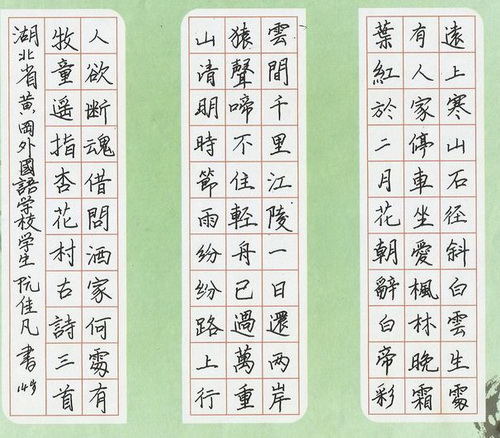 遠上寒山石径斜白雲生處
有人家停車坐愛楓林晚霜
葉紅於二月花朝辭白帝彩
雲間千里江陵一日還两岸
猿聲啼不住輕舟已過萬重
山清明時節雨紛紛路上行
人欲断魂借問酒家何處有
牧童遥指杏花村古詩三首
湖北省黄岡外國語學校学生 阮佳凡 書